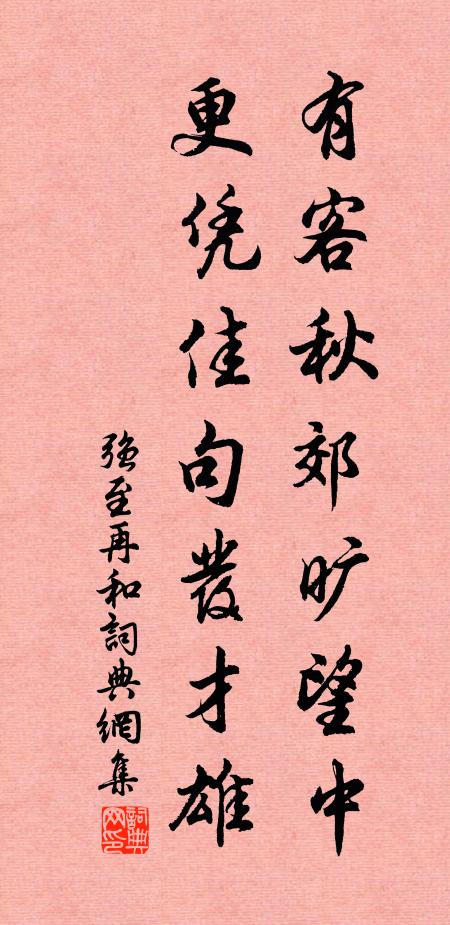 有客秋郊旷望中
更凭佳句發才雄
强至再和詞典網集
詞典网印